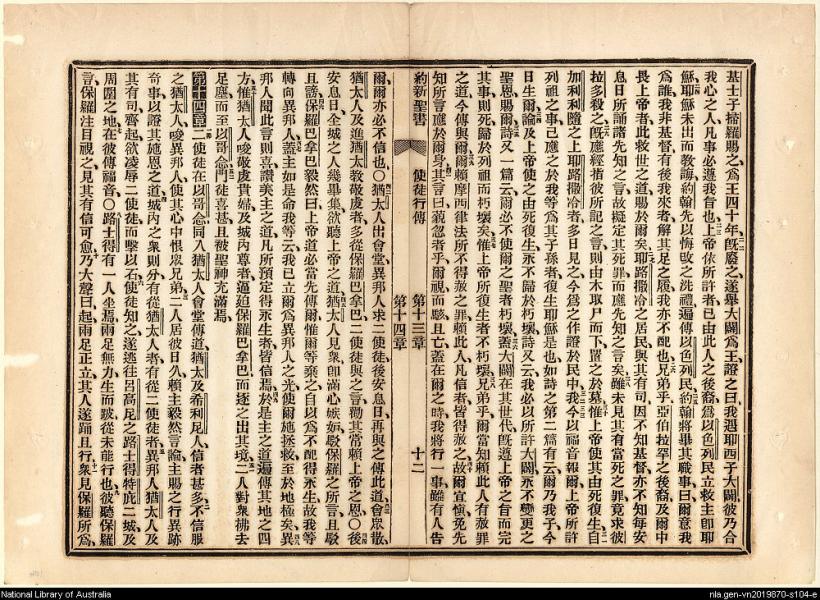 基士子掃羅賜之爲王四十年旣廢之遂舉大闢爲王證之曰我遇耶西子大闢彼乃合
我心之人凡事必遵我旨也上帝依所許者已由此人之後裔爲以色列民立救主卽耶
穌耶穌未出而教誨約翰先以悔改之洗禮遍傳以色列民約翰將畢其職事曰爾意我
爲誰我非基督有後我來者解其足之履我亦不配也兄弟乎亞伯拉罕之後裔及爾中
畏上帝者此救世之道賜於爾矣耶路撒冷之居民與其有司因不知基督亦不知每安
息日所誦諸先知之言故擬定其死罪而應先知之言矣雖未見其有當死之罪竟求彼
拉多殺之旣應經指彼所記之言則由木取尸而下置之於墓惟上帝使其由死復生自
加利利隨之上耶路撒冷者多日見之今爲之作證於民中我今以福音報爾上帝所許
列祖之事已應之於我等爲其子孫者復生耶穌是也如詩之第二篇有云爾乃我子今
日生爾論及上帝使之由死復生永不歸於朽壞則有云我必以所許大闢永不變更之
聖恩賜爾詩又一篇云爾必不使爾之聖者朽壞蓋大闢在其世代旣遵上帝之旨而完
其事則死歸於列祖而朽壞矣惟上帝所復生者不朽壞兄弟乎爾當知賴此人有赦罪
之道今傳與爾爾賴摩西律法所不得赦之罪賴此人凡信者皆得赦之故爾宜愼免先
知所言應於爾身其言曰藐忽者乎爾視而駭且亡蓋在爾之時我將行一事雖有人告
約新聖書
使徒行傳
第十三章
第十四章
十二
爾爾亦必不信也○猶太人出會堂異邦人求二使徒後安息日再與之傳此道會眾散
猶太人及進猶太教敬虔者多從保羅巴拿巴二使徒與之言勸其當賴上帝之恩○後
安息日全城之人幾畢集欲聽上帝之道猶太人見衆卽滿心嫉妬駁保羅之所言且駁
且謗保羅巴拿巴毅然曰上帝道必當先傳爾惟爾等棄之自以爲不配得永生故我等
轉向異邦人蓋主如是命我等云我已立爾爲異邦人之光使爾施拯救至於地極矣異
邦人聞此言則喜讚美主之道凡所預定得永生者皆信焉於是主之道遍傳其地之四
方惟猶太人唆敬虔貴婦及城內尊者逼迫保羅巴拿巴而逐之出其境二人對衆拂去
足塵而至以哥念門徒喜甚且被聖神充滿焉
第十四章二使徒在以哥念同入猶太人會堂傳道猶太及希利尼人信者甚多不信服
之猶太人唆異邦人使其心中恨眾兄弟二人居彼日久賴主毅然言論主賜之行異跡
奇事以證其施恩之道城內之衆則分有從猶太人者有從二使徒者異邦人猶太人及
其有司齊起欲凌辱二使徒而擊以石使徒知之遂逃往呂高尼之路士得特庇二城及
周圍之地在彼傳福音○路士得有一人坐焉兩足無力生而跛從未能行也彼聽保羅
言保羅注目視之見其有信可愈乃大聲曰起兩足正立其人遂踊且行衆見保羅所爲
National Library of Australia
nla.gen-vn2019870-s104-e